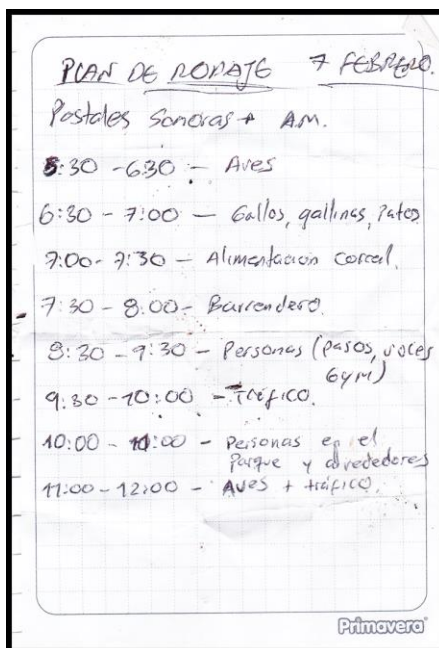 PLAN DE RODAJE 7 FEBRERO.
Postales Sonoras + A.M.
5:30 - 6:30 - Aves
6:30 - 7:00 - Gallos, gallinas, patos
7:00 - 7:30 - Alimentación corral.
7:30 - 8:00 - Barrendero.
8:30 - 9:30 - Personas (pasos, voces
Gym)
9:30 - 10:00 - Tráfico.
10:00 - 11:00 - Personas en el
Parque y alrededores
11:00 - 12:00 - Aves + tráfico.
Primavera